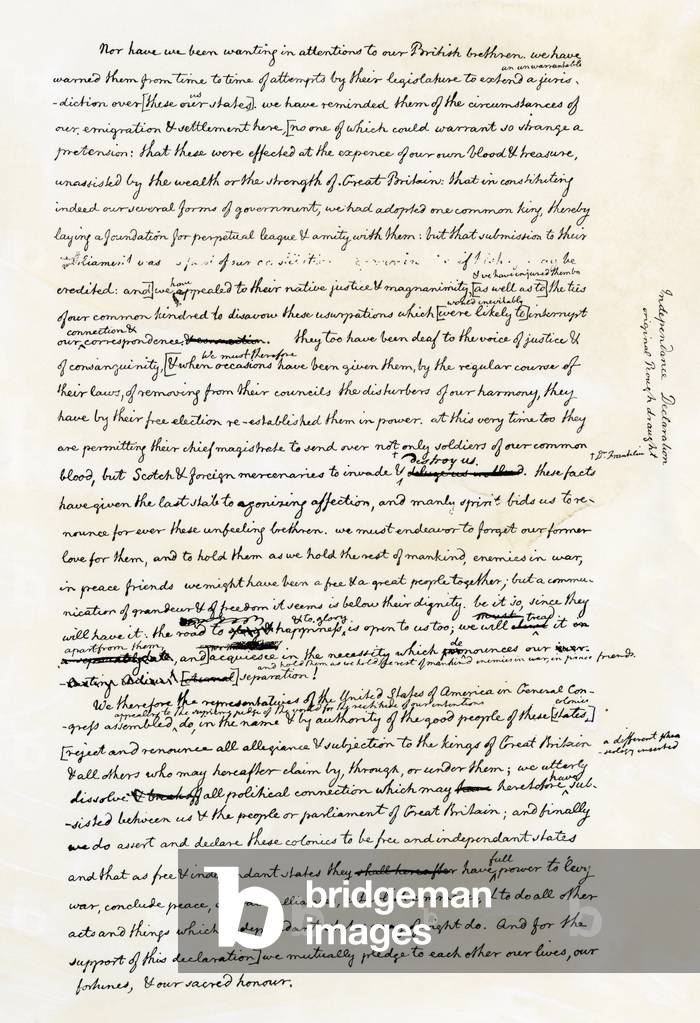 Nor have we been wanting in attentions to our British brethren. we have
an unwarrantable
warned them from time to time of attempts by their legislature to extend a juris-
us
-diction over [these our states]. we have reminded them of the circumstances of
our emigration & settlement here, [no one of which could warrant so strange a
pretension: that these were effected at the expence of our own blood & treasure,
unassisted by the wealth or the strength of Great Britain: that in constituting
indeed our several forms of government, we had adopted one common king, thereby
laying a foundation for perpetual league & amity with them: but that submission to their
parliament was of our be
& we have conjured them by
have
credited: and] we appealed to their native justice & magnanimity, [as well as to] the ties
would inevitably
of our common kindred to disavow these usurpations which [were likely to] interrupt
connection &
our correspondence & connection. they too have been deaf to the voice of justice &
We must therefore
of consanguinity, [& when occasions have been given them, by the regular course of
their laws, of removing from their councils the disturbers of our harmony, they
have by their free election re-established them in power. at this very time too they
are permitting their chief magistrate to send over not only soldiers of our common
destroy us.
blood, but Scotch & foreign mercenaries to invade & deluge us in blood. these facts
have given the last stab to agonizing affection, and manly spirit bids us to re-
nounce for ever these unfeeling brethren. we must endeavor to forget our former
love for them, and to hold them as we hold the rest of mankind, enemies in war,
in peace friends we might have been a free & a great people together; but a commu-
nication of grandeur & of freedom it seems is below their dignity. be it so, since they
& to glory
will have it: the road to happiness is open to us too; we will it
apart from them
and] acquiesce in the necessity which our
and hold them as we hold the rest of mankind enemies in war, in peace friends.
[eternal] separation!
We therefore the representatives of the United States of America in General Con-
appealing to the supreme judge of the world for the rectitude of our intentions
colonies
-gress assembled, do, in the name & by authority of the good people of these [states,]
[reject and renounce all allegiance & subjection to the kings of Great Britain
& all others who may hereafter claim by, through, or under them; we utterly
have
dissolve & break off all political connection which may have heretofore sub-
-sisted between us & the people or parliament of Great Britain; and finally
we do assert and declare these colonies to be free and independant states
full
and that as free & independant states they shall hereafter have power to levy
war, conclude peace, to do all other
acts and things which independant do. And for the
support of this declaration] we mutually pledge to each other our lives, our
fortunes, & our sacred honour.
Independance Declaration
original Rough draught
+ Dr. Franklin
a different phra
-seology inserted
b
bridgeman
images